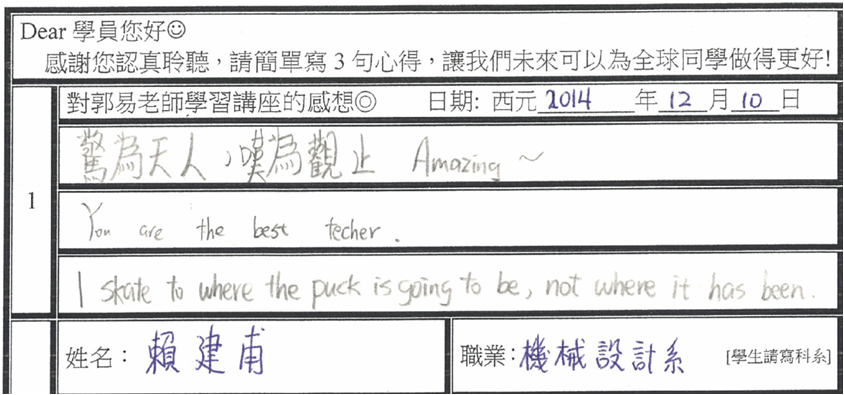 Dear 學員您好☺
感謝您認真聆聽，請簡單寫 3 句心得，讓我們未來可以為全球同學做得更好!
對郭易老師學習講座的感想◎ 日期: 西元 2014 年 12 月 10 日
驚為天人，嘆為觀止 Amazing ~
1
You are the best techer.
I skate to where the puck is going to be, not where it has been.
姓名： 賴建甫 職業：機械設計系 [學生請寫科系]